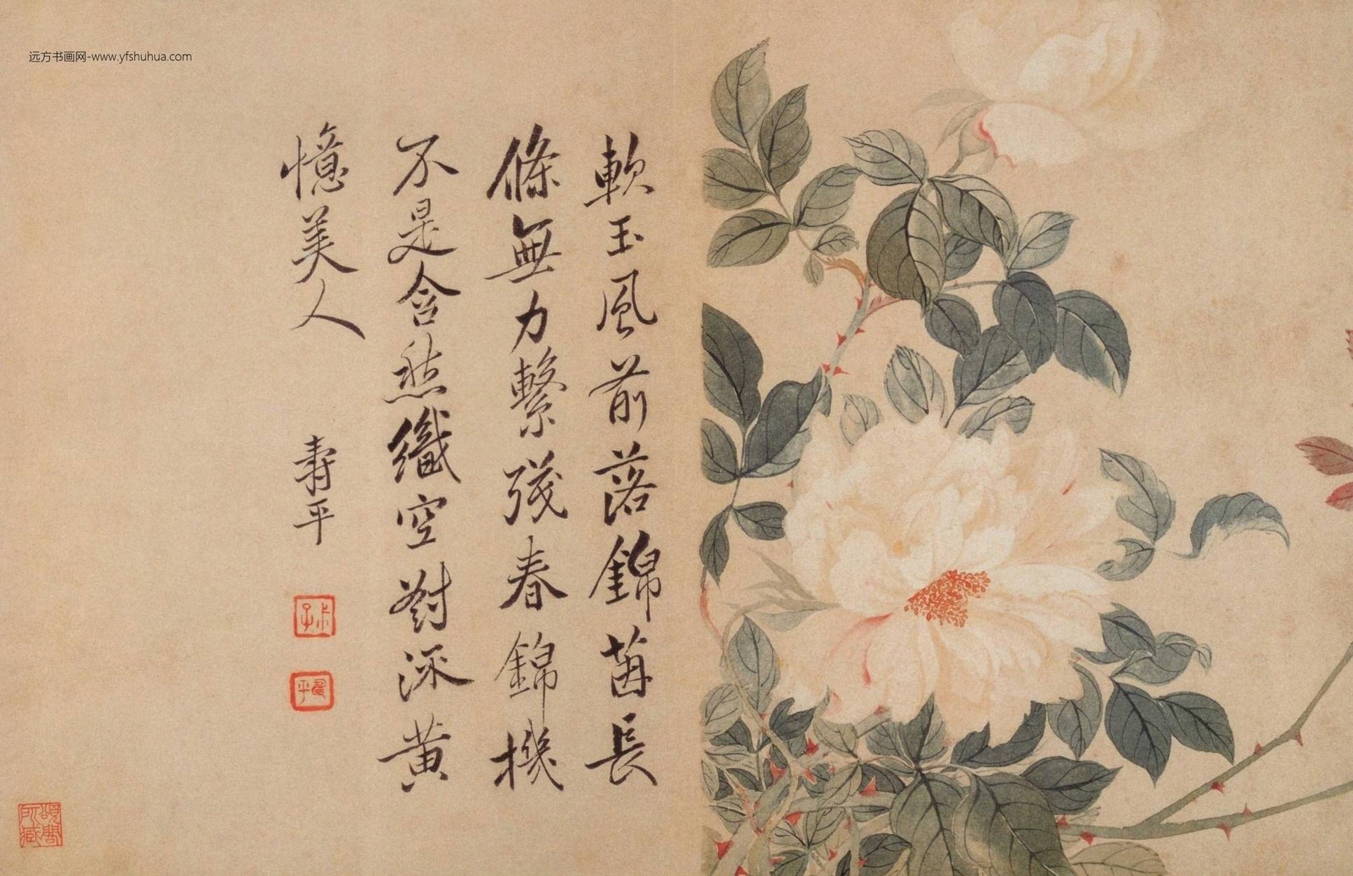 远方书画网-www.yfshuhua.com
軟玉風前落錦茵長
條無力繫殘春錦機
不是含愁織空對流黃
憶美人 壽平
叔子
壽平